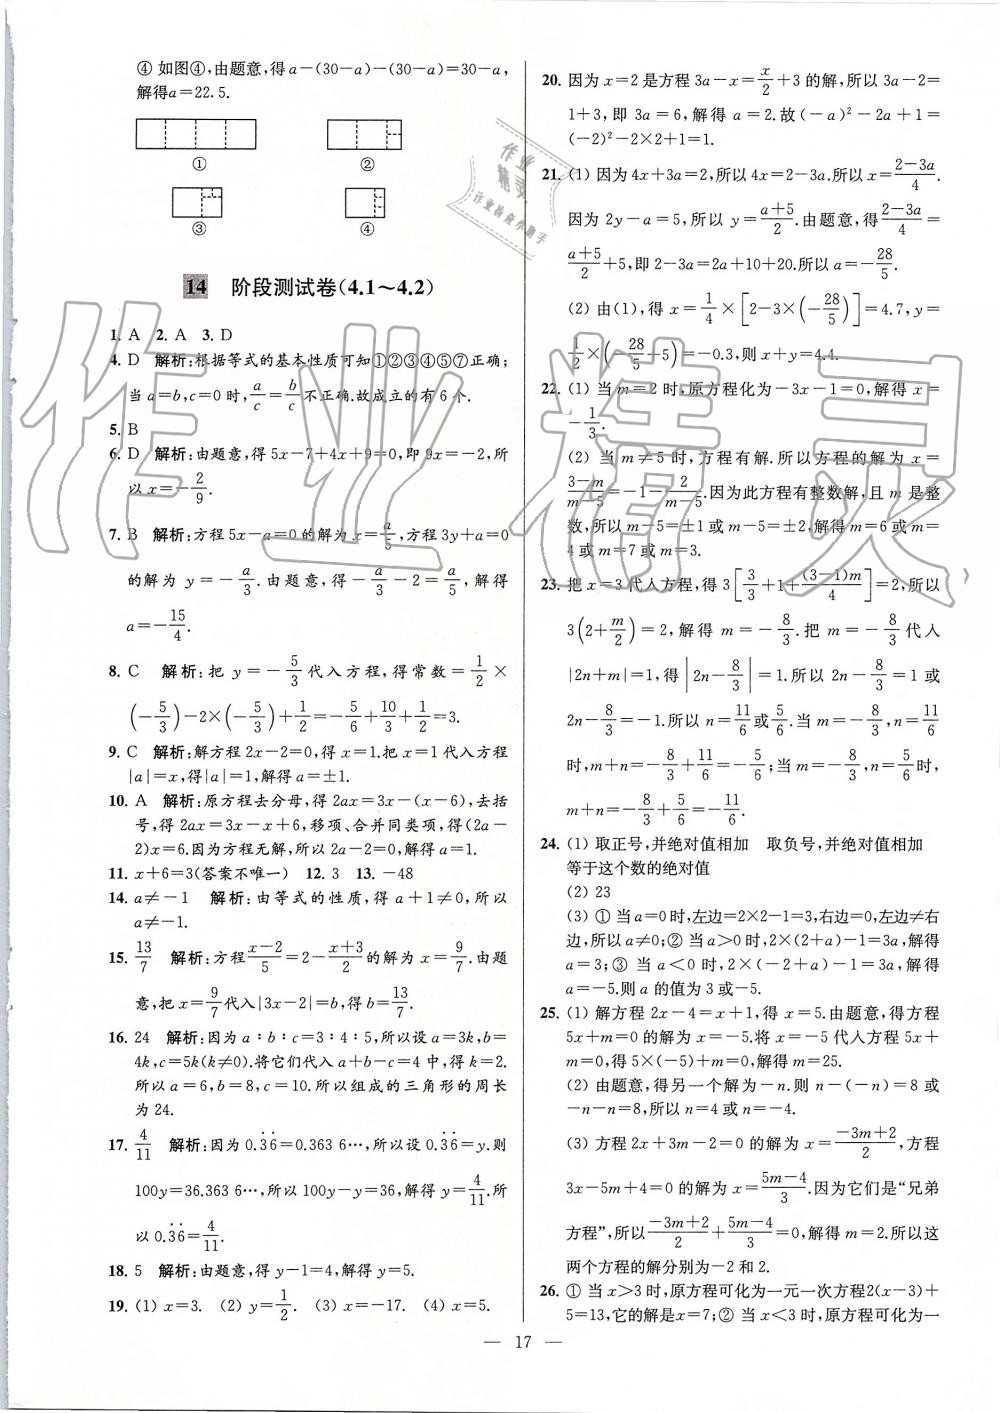 ④ 如图④,由题意,得a-(30-a)-(30-a)=30-a,
解得a=22.5.
① ②
③ ④
14 阶段测试卷(4.1～4.2)
1. A 2. A 3. D
4. D 解析:根据等式的基本性质可知①②③④⑤⑦正确;
当a=b,c=0时,a/c=b/c不正确.故成立的有6个.
5. B
6. D 解析:由题意,得5x-7+4x+9=0,即9x=-2,所
以x=-2/9.
7. B 解析:方程5x-a=0的解为x=a/5,方程3y+a=0
的解为y=-a/3.由题意,得-a/3-2=a/5,解得
a=-15/4.
8. C 解析:把y=-5/3代入方程,得常数=1/2×
(-5/3)-2×(-5/3)+1/2=-5/6+10/3+1/2=3.
9. C 解析:解方程2x-2=0,得x=1.把x=1代入方程
|a|=x,得|a|=1,解得a=±1.
10. A 解析:原方程去分母,得2ax=3x-(x-6),去括
号,得2ax=3x-x+6,移项、合并同类项,得(2a-
2)x=6.因为方程无解,所以2a-2=0,解得a=1.
11. x+6=3(答案不唯一) 12. 3 13. -48
14. a≠-1 解析:由等式的性质,得a+1≠0,所以
a≠-1.
15. 13/7 解析:方程(x-2)/5=2-(x+3)/2的解为x=9/7.由题
意,把x=9/7代入|3x-2|=b,得b=13/7.
16. 24 解析:因为a∶b∶c=3∶4∶5,所以设a=3k,b=
4k,c=5k(k≠0).将它们代入a+b-c=4中,得k=2.
所以a=6,b=8,c=10.所以组成的三角形的周长
为24.
17. 4/11 解析:因为0.3̇6̇=0.363 6…,所以设0.3̇6̇=y.则
100y=36.363 6…,所以100y-y=36,解得y=4/11.所
以0.3̇6̇=4/11.
18. 5 解析:由题意,得y-1=4,解得y=5.
19. (1) x=3. (2) y=1/2. (3) x=-17. (4) x=5.
20. 因为x=2是方程3a-x=x/2+3的解,所以3a-2=
1+3,即3a=6,解得a=2.故(-a)²-2a+1=
(-2)²-2×2+1=1.
21. (1) 因为4x+3a=2,所以4x=2-3a.所以x=(2-3a)/4.
因为2y-a=5,所以y=(a+5)/2.由题意,得(2-3a)/4=
(a+5)/2+5,即2-3a=2a+10+20.所以a=-28/5.
(2) 由(1),得x=1/4×[2-3×(-28/5)]=4.7,y=
1/2×(-28/5+5)=-0.3,则x+y=4.4.
22. (1) 当m=2时,原方程化为-3x-1=0,解得x=
-1/3.
(2) 当m≠5时,方程有解.所以方程的解为x=
(3-m)/(m-5)=-1-2/(m-5).因为此方程有整数解,且m是整
数,所以m-5=±1或m-5=±2,解得m=6或m=
4或m=7或m=3.
23. 把x=3代入方程,得3[3/3+1+(3-1)m/4]=2,所以
3(2+m/2)=2,解得m=-8/3.把m=-8/3代入
|2n+m|=1,得|2n-8/3|=1.所以2n-8/3=1或
2n-8/3=-1.所以n=11/6或5/6.当m=-8/3,n=11/6
时,m+n=-8/3+11/6=-5/6;当m=-8/3,n=5/6时,
m+n=-8/3+5/6=-11/6.
24. (1) 取正号,并绝对值相加 取负号,并绝对值相加
等于这个数的绝对值
(2) 23
(3) ① 当a=0时,左边=2×2-1=3,右边=0,左边≠右
边,所以a≠0;② 当a>0时,2×(2+a)-1=3a,解得
a=3;③ 当a<0时,2×(-2+a)-1=3a,解得
a=-5.则a的值为3或-5.
25. (1) 解方程2x-4=x+1,得x=5.由题意,得方程
5x+m=0的解为x=-5.将x=-5代入方程5x+
m=0,得5×(-5)+m=0,解得m=25.
(2) 由题意,得另一个解为-n.则n-(-n)=8或
-n-n=8,所以n=4或n=-4.
(3) 方程2x+3m-2=0的解为x=(-3m+2)/2,方程
3x-5m+4=0的解为x=(5m-4)/3.因为它们是“兄弟
方程”,所以(-3m+2)/2+(5m-4)/3=0,解得m=2.所以这
两个方程的解分别为-2和2.
26. ① 当x>3时,原方程可化为一元一次方程2(x-3)+
5=13,它的解是x=7;② 当x<3时,原方程可化为一
— 17 —
作业精灵
作业精灵